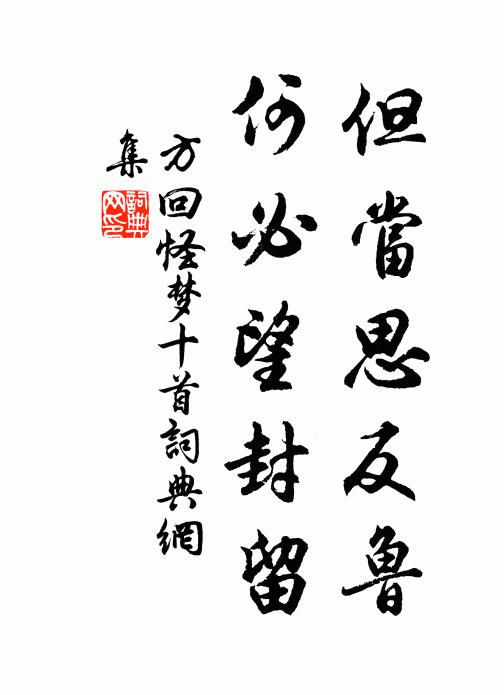 但當思反魯
何必望封留
方回怪梦十首詞典網
集
詞典
网印